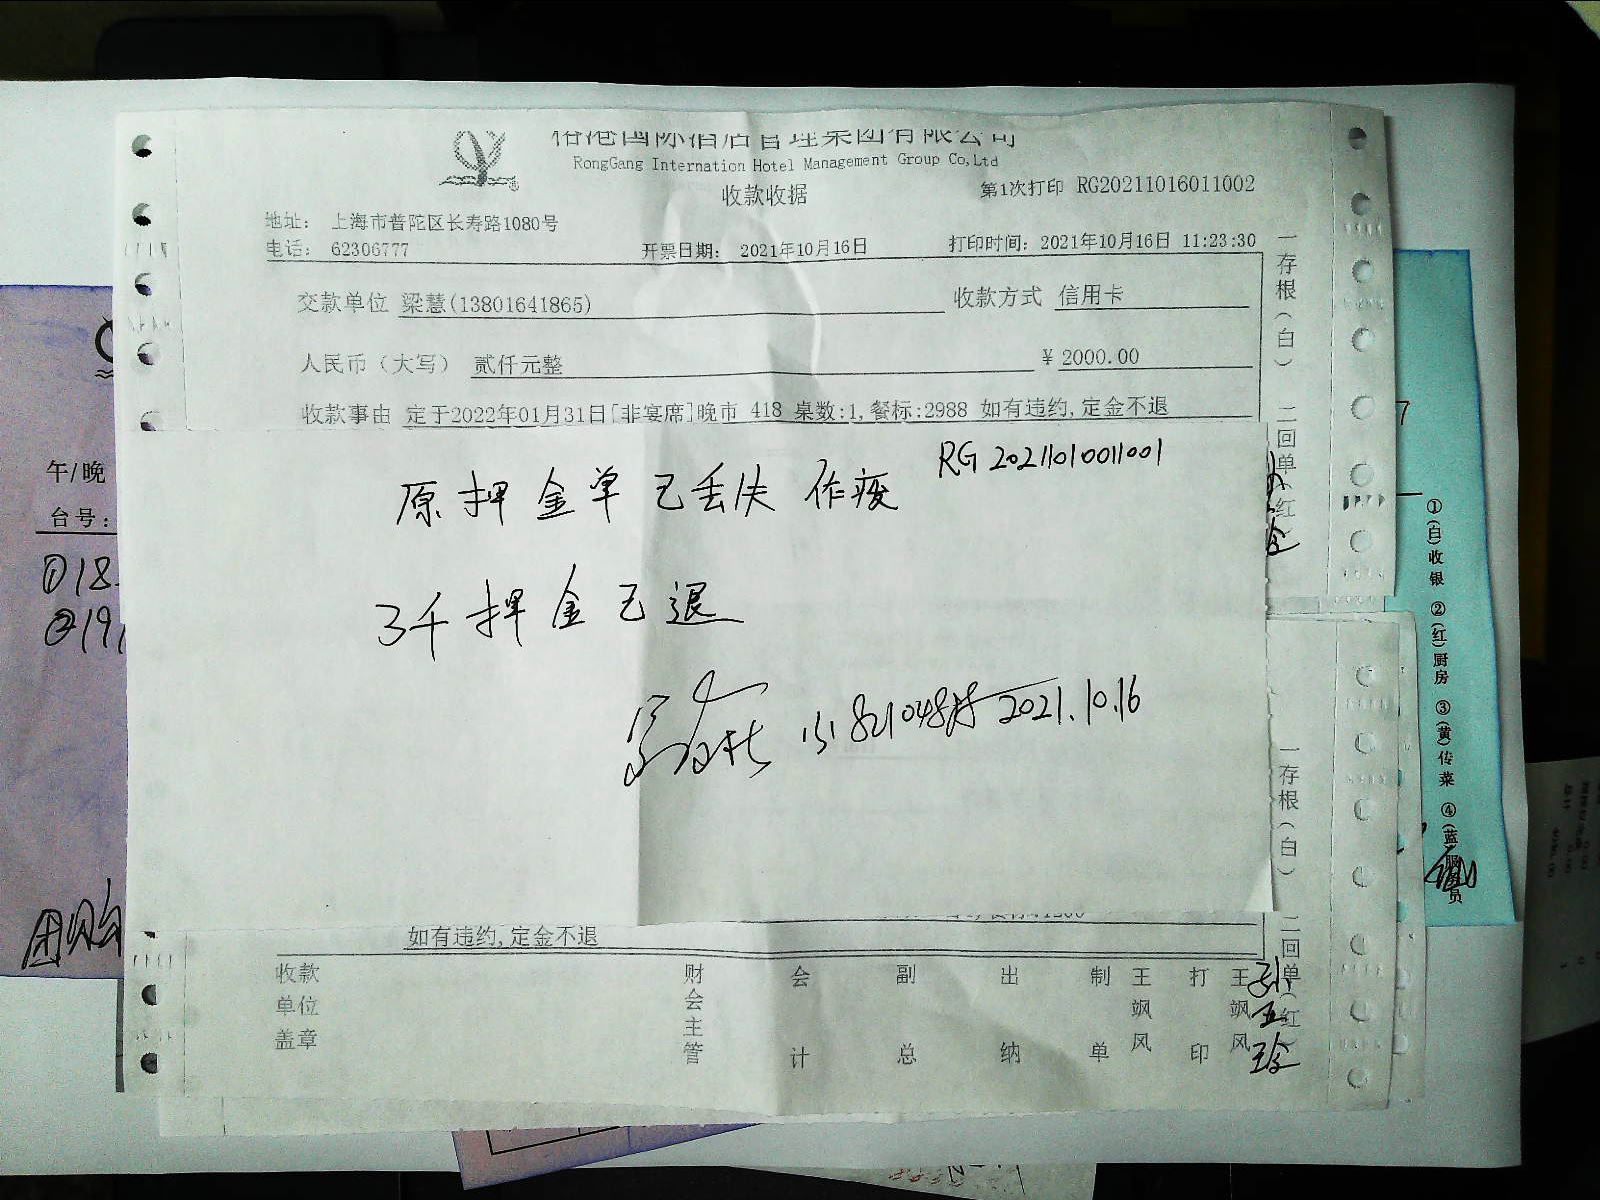 榕港国际酒店管理集团有限公司
RongGang Internation Hotel Management Group Co,Ltd
收款收据
第1次打印 RG20211016011002
地址： 上海市普陀区长寿路1080号
电话： 62306777
开票日期： 2021年10月16日
打印时间：2021年10月16日 11:23:30
交款单位 梁慧(13801641865)
收款方式 信用卡
人民币（大写） 贰仟元整
￥2000.00
收款事由 定于2022年01月31日[非宴席]晚市 418 桌数:1,餐标:2988 如有违约,定金不退
一存根（白） 二回单（红）
RG 20211010011001
原押金单已丢失 作废
3千押金已退
2021.10.16
如有违约,定金不退
收款单位盖章
财会主管
会计
副总
出纳
制单
王飒风
打印
王飒风
一存根（白） 二回单（红）
午/晚
台号:
①18
②19
团购
①(白)收银 ②(红)厨房 ③(黄)传菜 ④(蓝)服务员